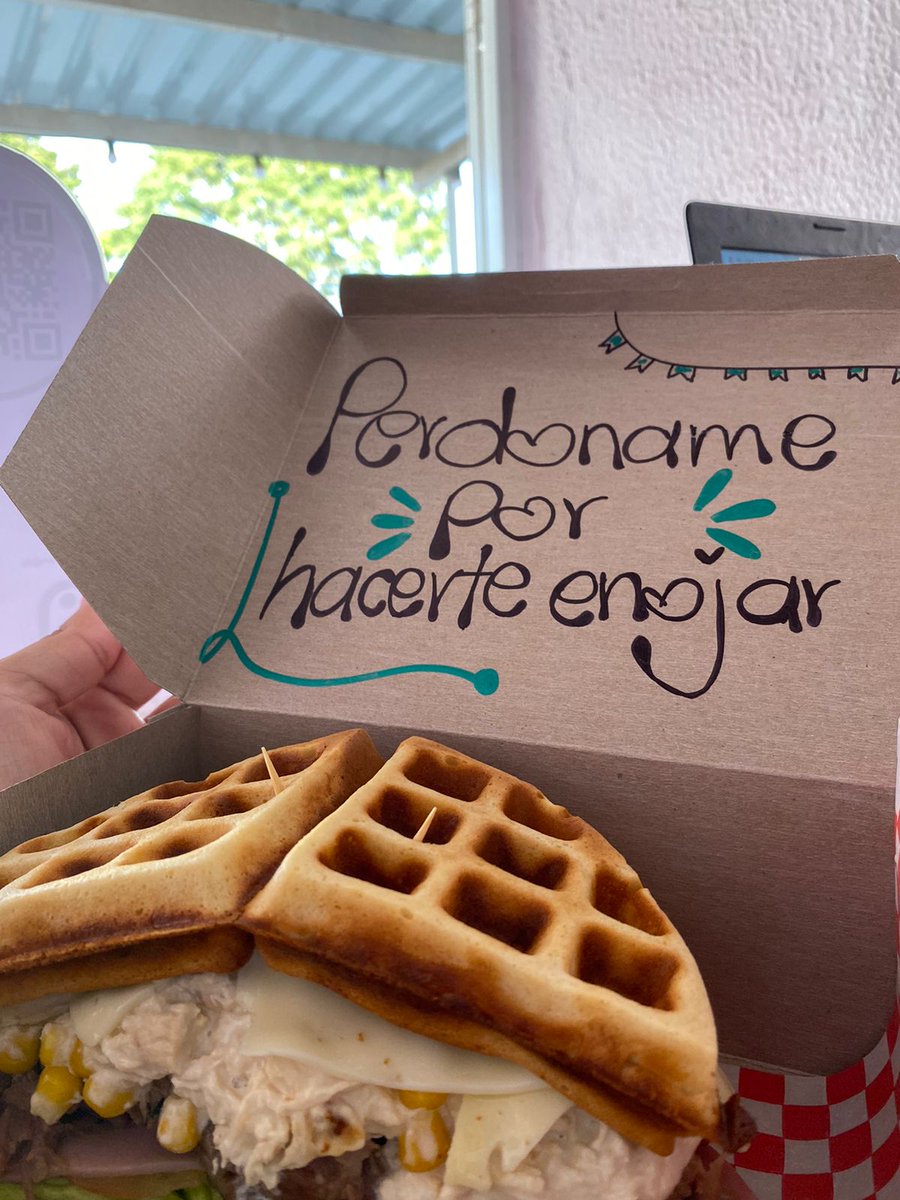 Perdoname
por
hacerte enojar